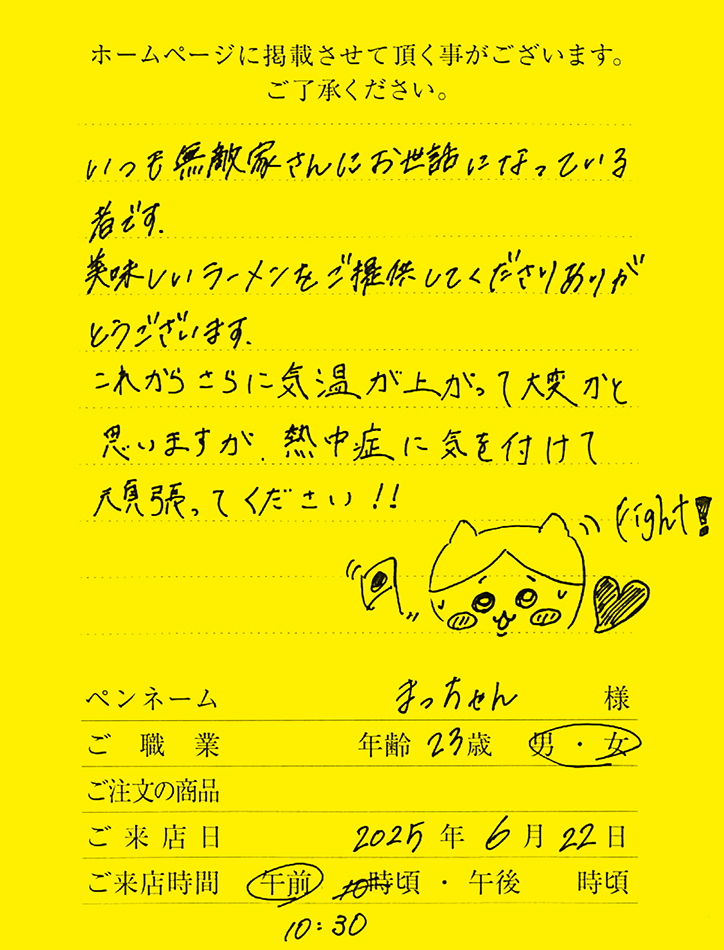 ホームページに掲載させて頂く事がございます。
ご了承ください。
いつも無敵家さんにお世話になっている
者です.
美味しいラーメンをご提供してくださりありが
とうございます.
これからさらに気温が上がって大変かと
思いますが、熱中症に気を付けて
頑張ってください!!
fight!
ペンネーム まっちゃん 様
ご職業 年齢 23歳 男・女
ご注文の商品
ご来店日 2025年 6月 22日
ご来店時間 午前 10時頃・午後 時頃
10:30